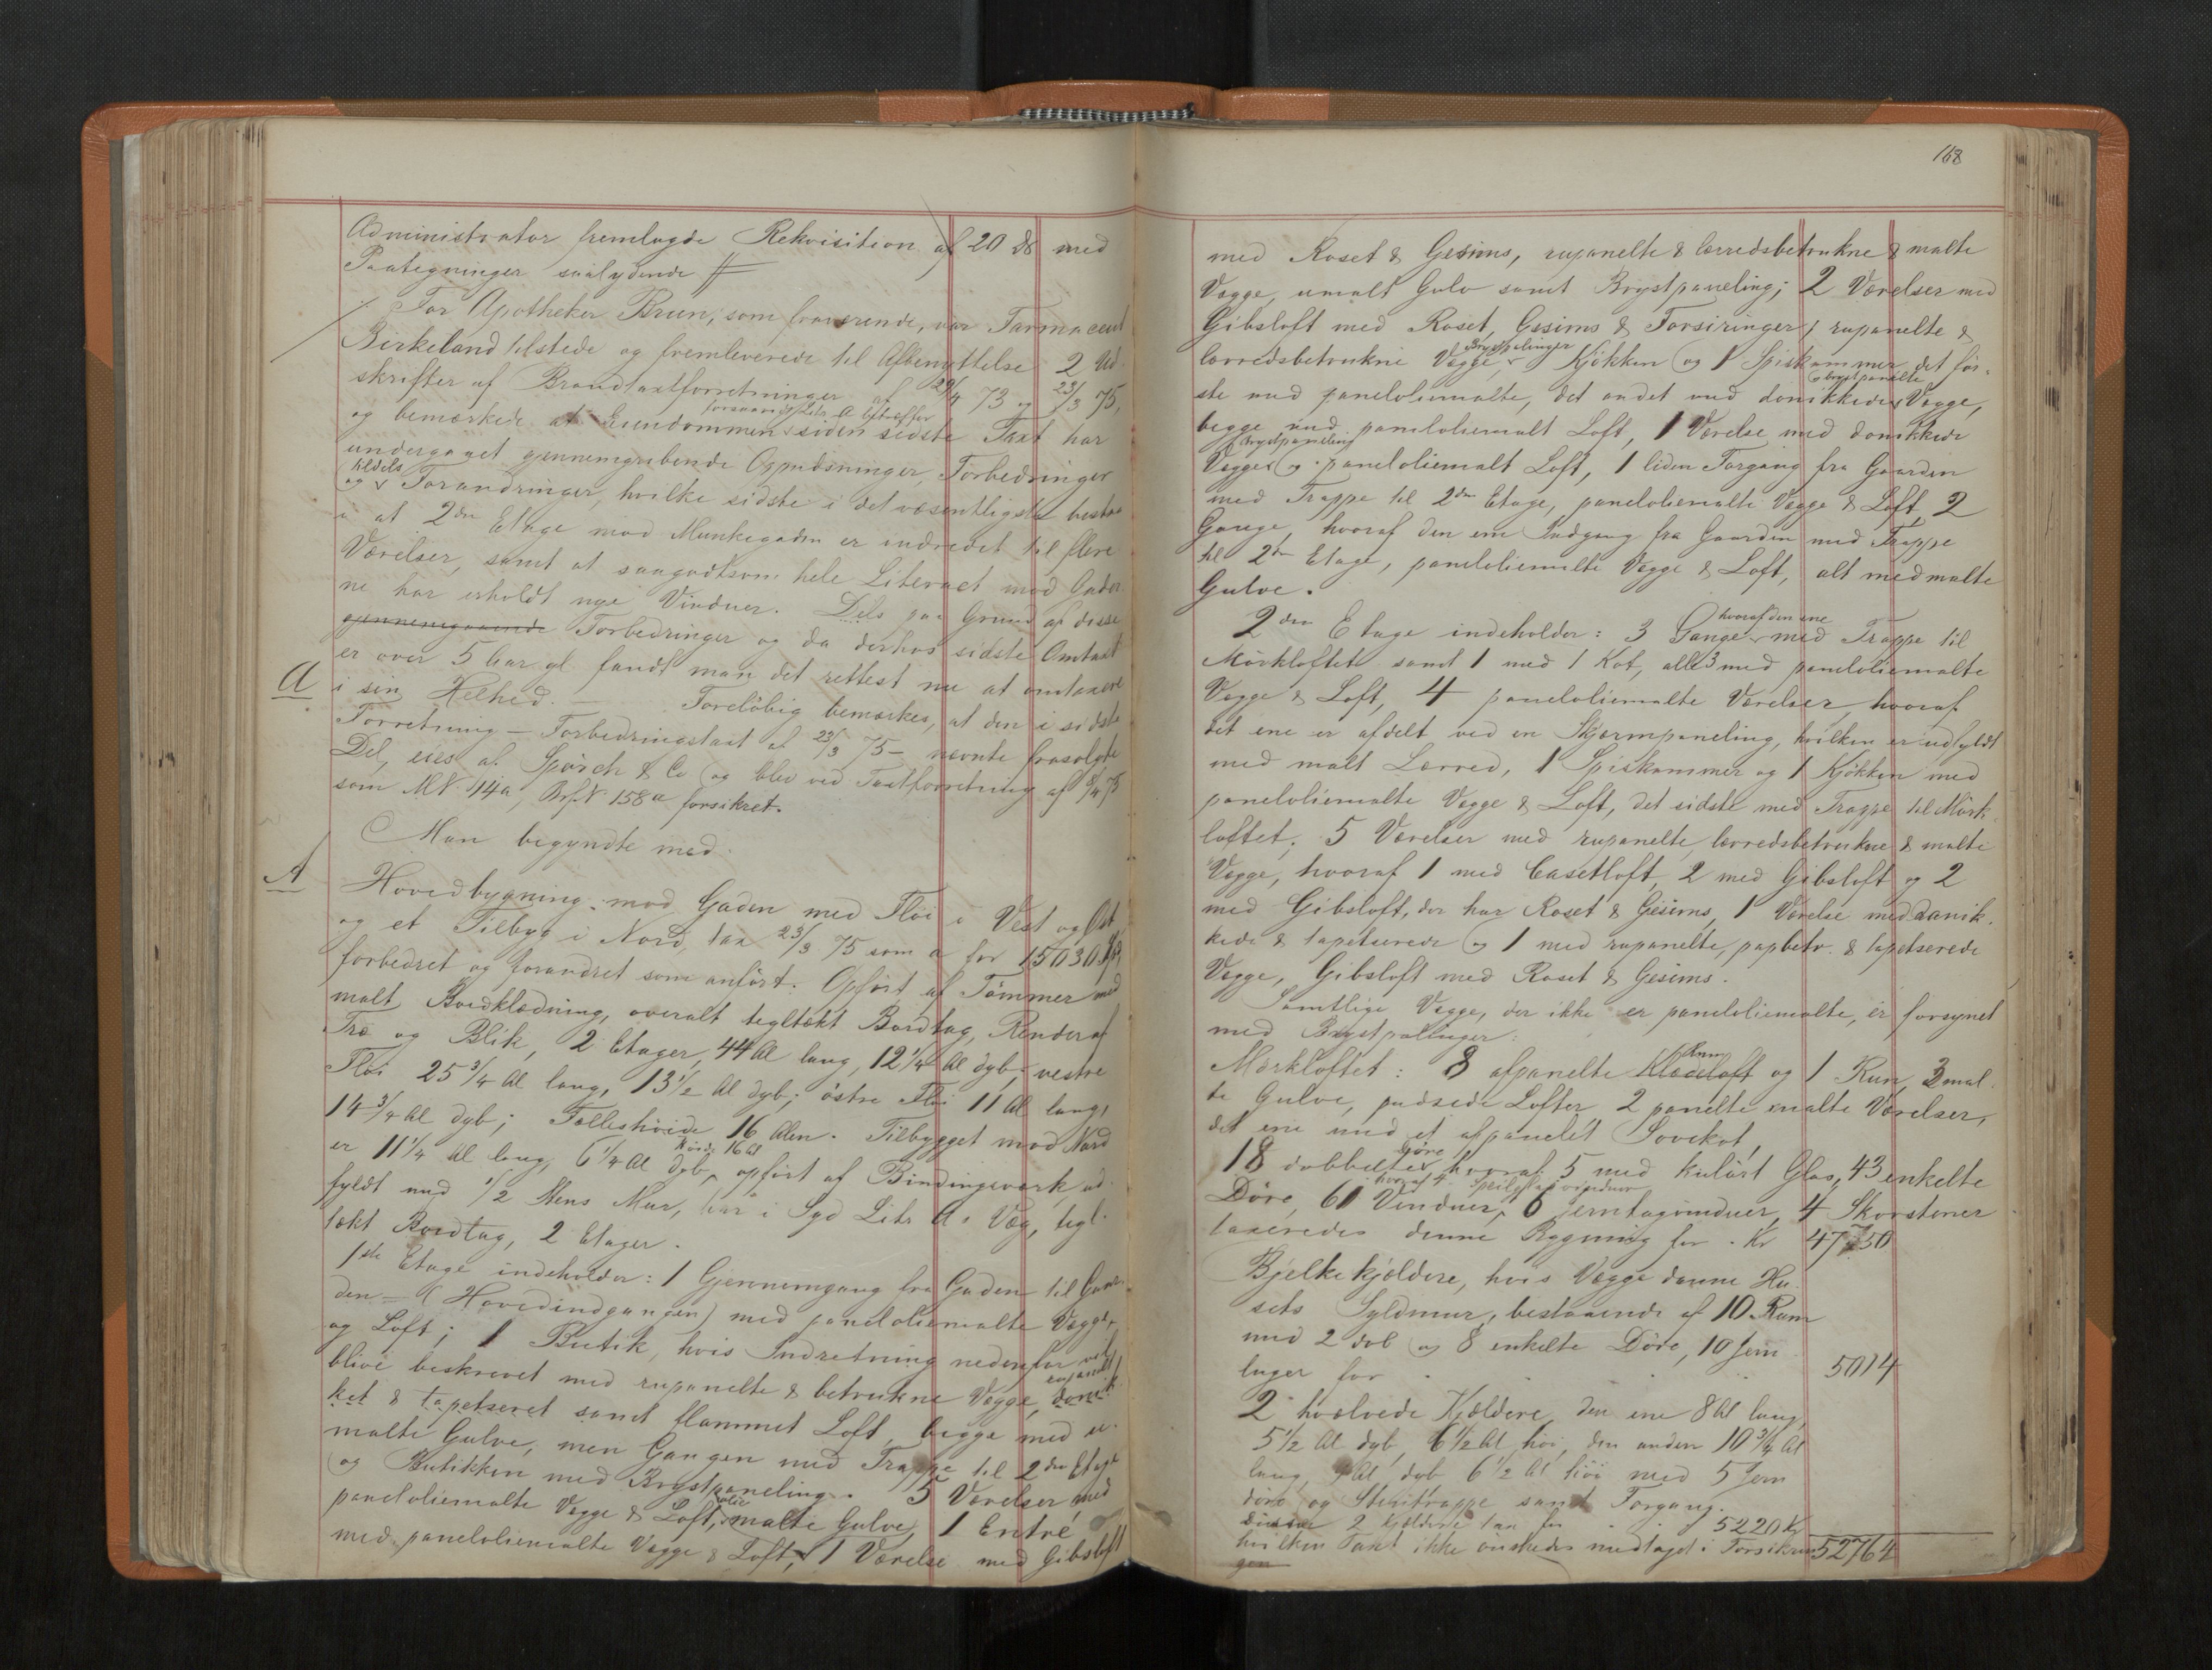 Administrator fremlagde Rekvisition af 20 ds med
Paategninger saalydende #
For Apotheker Brun, som fraværende, var Farmaceut
Birkeland tilstede og fremleverede til Afbenyttelse 2 Ud-
skrifter af Brandtaxtforretninger af 29/4 73 og 23/3 75,
forsaavidt Litr. A betræffer
og bemærkede at Eiendommen siden sidste Taxt har
undergaaet gjennemgribende Oppudsninger, Forbedringer
tildels
og Forandringer, hvilke sidste i det væsentligste bestaa
i at 2den Etage mod Munkegaden er indredet til flere
Værelser, samt at saagodtsom hele Litraet mod Gader-
ne har erholdt nye Vinduer. Dels paa Grund af disse
gjennemgaaende Forbedringer og da derhos sidste Omtaxt
er over 5 Aar gl. fandt man det rettest nu at omtaxere
A
i sin Helhed. — Foreløbig bemærkes, at den i sidste
Forretning — Forbedringstaxt af 23/3 75 — nævnte frasolgte
Del, eies af Spørck & Co og blev ved Taxtforretning af 8/4 75
som MN 14a, BrfN 158a forsikret.
Man begyndte med:
A
Hovedbygning mod Gaden med Fløi i Vest og Øst,
og et Tilbyg i Nord, tax 23/3 75 som a for 15030 Spd,
forbedret og forandret som anført. Opført af Tømmer med
malt Bordklædning, overalt tegltækt Bordtag, Render af
Træ og Blik, 2 Etager, 44 Al lang, 12 1/4 Al dyb, vestre
Fløi 25 3/4 Al lang, 13 1/2 Al dyb; østre Fløi 11 Al lang,
14 3/4 Al dyb; Fælleshøide 16 Alen. Tilbygget mod Nord
Høide 16 Al
er 11 1/4 Al lang, 6 1/4 Al dyb, opført af Bindingsverk, ud-
fyldt med 1/2 Stens Mur, har i Syd Litr A's Væg, tegl-
tækt Bordtag, 2 Etager.
1ste Etage indeholder: 1 Gjennemgang fra Gaden til Gaar-
den — (Hovedindgangen) med paneloliemalte Vægge
og Loft; 1 Butik, hvis Indretning nedenfor vil
blive beskrevet med rupanelte & betrukne Vægge, rupanelt,
ket & tapetseret samt flammet Loft, begge med u-
malte Gulve, men Gangen med Trappe til 2den Etage
og Butikken med Brystpaneling. 5 Værelser med
olie
paneloliemalte Vægge & Loft, malte Gulve, 1 Entré
med paneloliemalte Vægge & Loft, 1 Værelse med Gibsloft
168
med Roset & Gesims, rupanelte & lærredsbetrukne & malte
Vægge, umalt Gulv samt Brystpaneling; 2 Værelser med
Gibsloft med Roset, Gesims & Forsiringer, rupanelte &
Brystpalinger
lærredsbetrukne Vægge, Kjøkken og 1 Spiskammer, det før-
& brystpanelte
ste med paneloliemalte, det andet med donikkede Vægge,
begge med paneloliemalt Loft, 1 Værelse med donikkede
Brystpaneling
Vægge og paneloliemalt Loft, 1 liden Forgang fra Gaarden
med Trappe til 2den Etage, paneloliemalte Vægge & Loft, 2
Gange, hvoraf den ene Indgang fra Gaarden med Trappe
til 2den Etage, paneloliemalte Vægge & Loft, alt med malte
Gulve.
hvoraf den ene
2den Etage indeholder: 3 Gange med Trappe til
Mørkloftet samt 1 med 1 Kot, alle 3 med paneloliemalte
Vægge & Loft, 4 paneloliemalte Værelser, hvoraf
det ene er afdelt ved en Skjærmpaneling, hvilken er udfyldt
med malt Lærred, 1 Spiskammer og 1 Kjøkken med
paneloliemalte Vægge & Loft, det sidste med Trappe til Mørk-
loftet; 5 Værelser med rupanelte, lærredsbetrukne & malte
Vægge, hvoraf 1 med Casetloft, 2 med Gibsloft og 2
med Gibsloft, der har Roset & Gesims, 1 Værelse med donik-
kede & tapetserede og 1 med rupanelte, papbetr. & tapetserede
Vægge, Gibsloft med Roset & Gesims.
Samtlige Vægge, der ikke er paneloliemalte, er forsynet
med Brystpalinger.
Rum
Mørkloftet: 8 afpanelte Klædeloft og 1 Rum, 3 mal-
te Gulve, pudsede Lofter, 2 panelte malte Værelser,
det ene med et afpanelet Sovekot,
Døre
18 dobbelte, hvoraf 5 med kulørt Glas, 43 enkelte
hvoraf 4 Speilglasvinduer
Døre, 61 Vinduer, 6 Jerntagvinduer, 4 Skorstener
taxeredes denne Bygning for . Kr 47750
Bjelkekjældere, hvis Vægge danne Hu-
sets Syldmur, bestaaende af 10 Rum
med 2 dob og 8 enkelte Døre, 10 Jern
luger for . . . . 5014
2 hvælvede Kjældere, den ene 8 Al lang,
5 1/2 Al dyb, 6 1/2 Al høi, den anden 10 3/4 Al
lang, 9 Al dyb 6 1/2 Al høi med 5 Jern
døre og Stentrappe samt Forgang.
disse 2 Kjældere tax for . . 5220 Kr
hvilken Taxt ikke ønskedes medtaget i Forsikrin 52764
gen